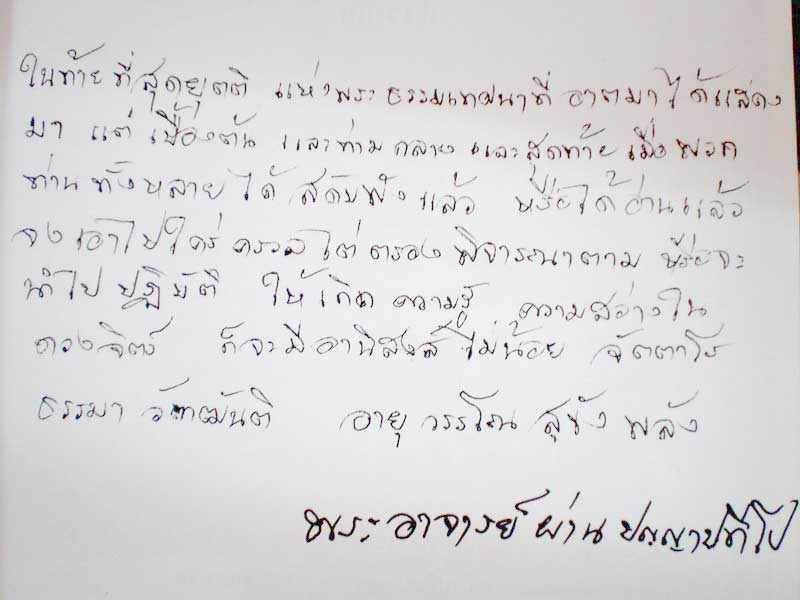 ในท้ายที่สุดยุตติ แห่งพระธรรมเทศนาที่ อาตมาได้แสดง
มา แต่เบื้องต้น และท่ามกลาง และสุดท้าย เมื่อพวก
ท่านทั้งหลายได้ สดับฟังแล้ว หรือได้อ่านแล้ว
จงเอาไปใคร่ครวญไตร่ตรอง พิจารณาตาม หรือจะ
นำไปปฏิบัติ ให้เกิดความรู้ ความสว่างใน
ดวงจิตร์ ก็จะมีอานิสงส์ไม่น้อย จัตตาโร
ธรรมา วัฑฒันติ อายุ วรรโณ สุขัง พลัง
พระอาจารย์ ผ่าน ปญฺญาปทีโป